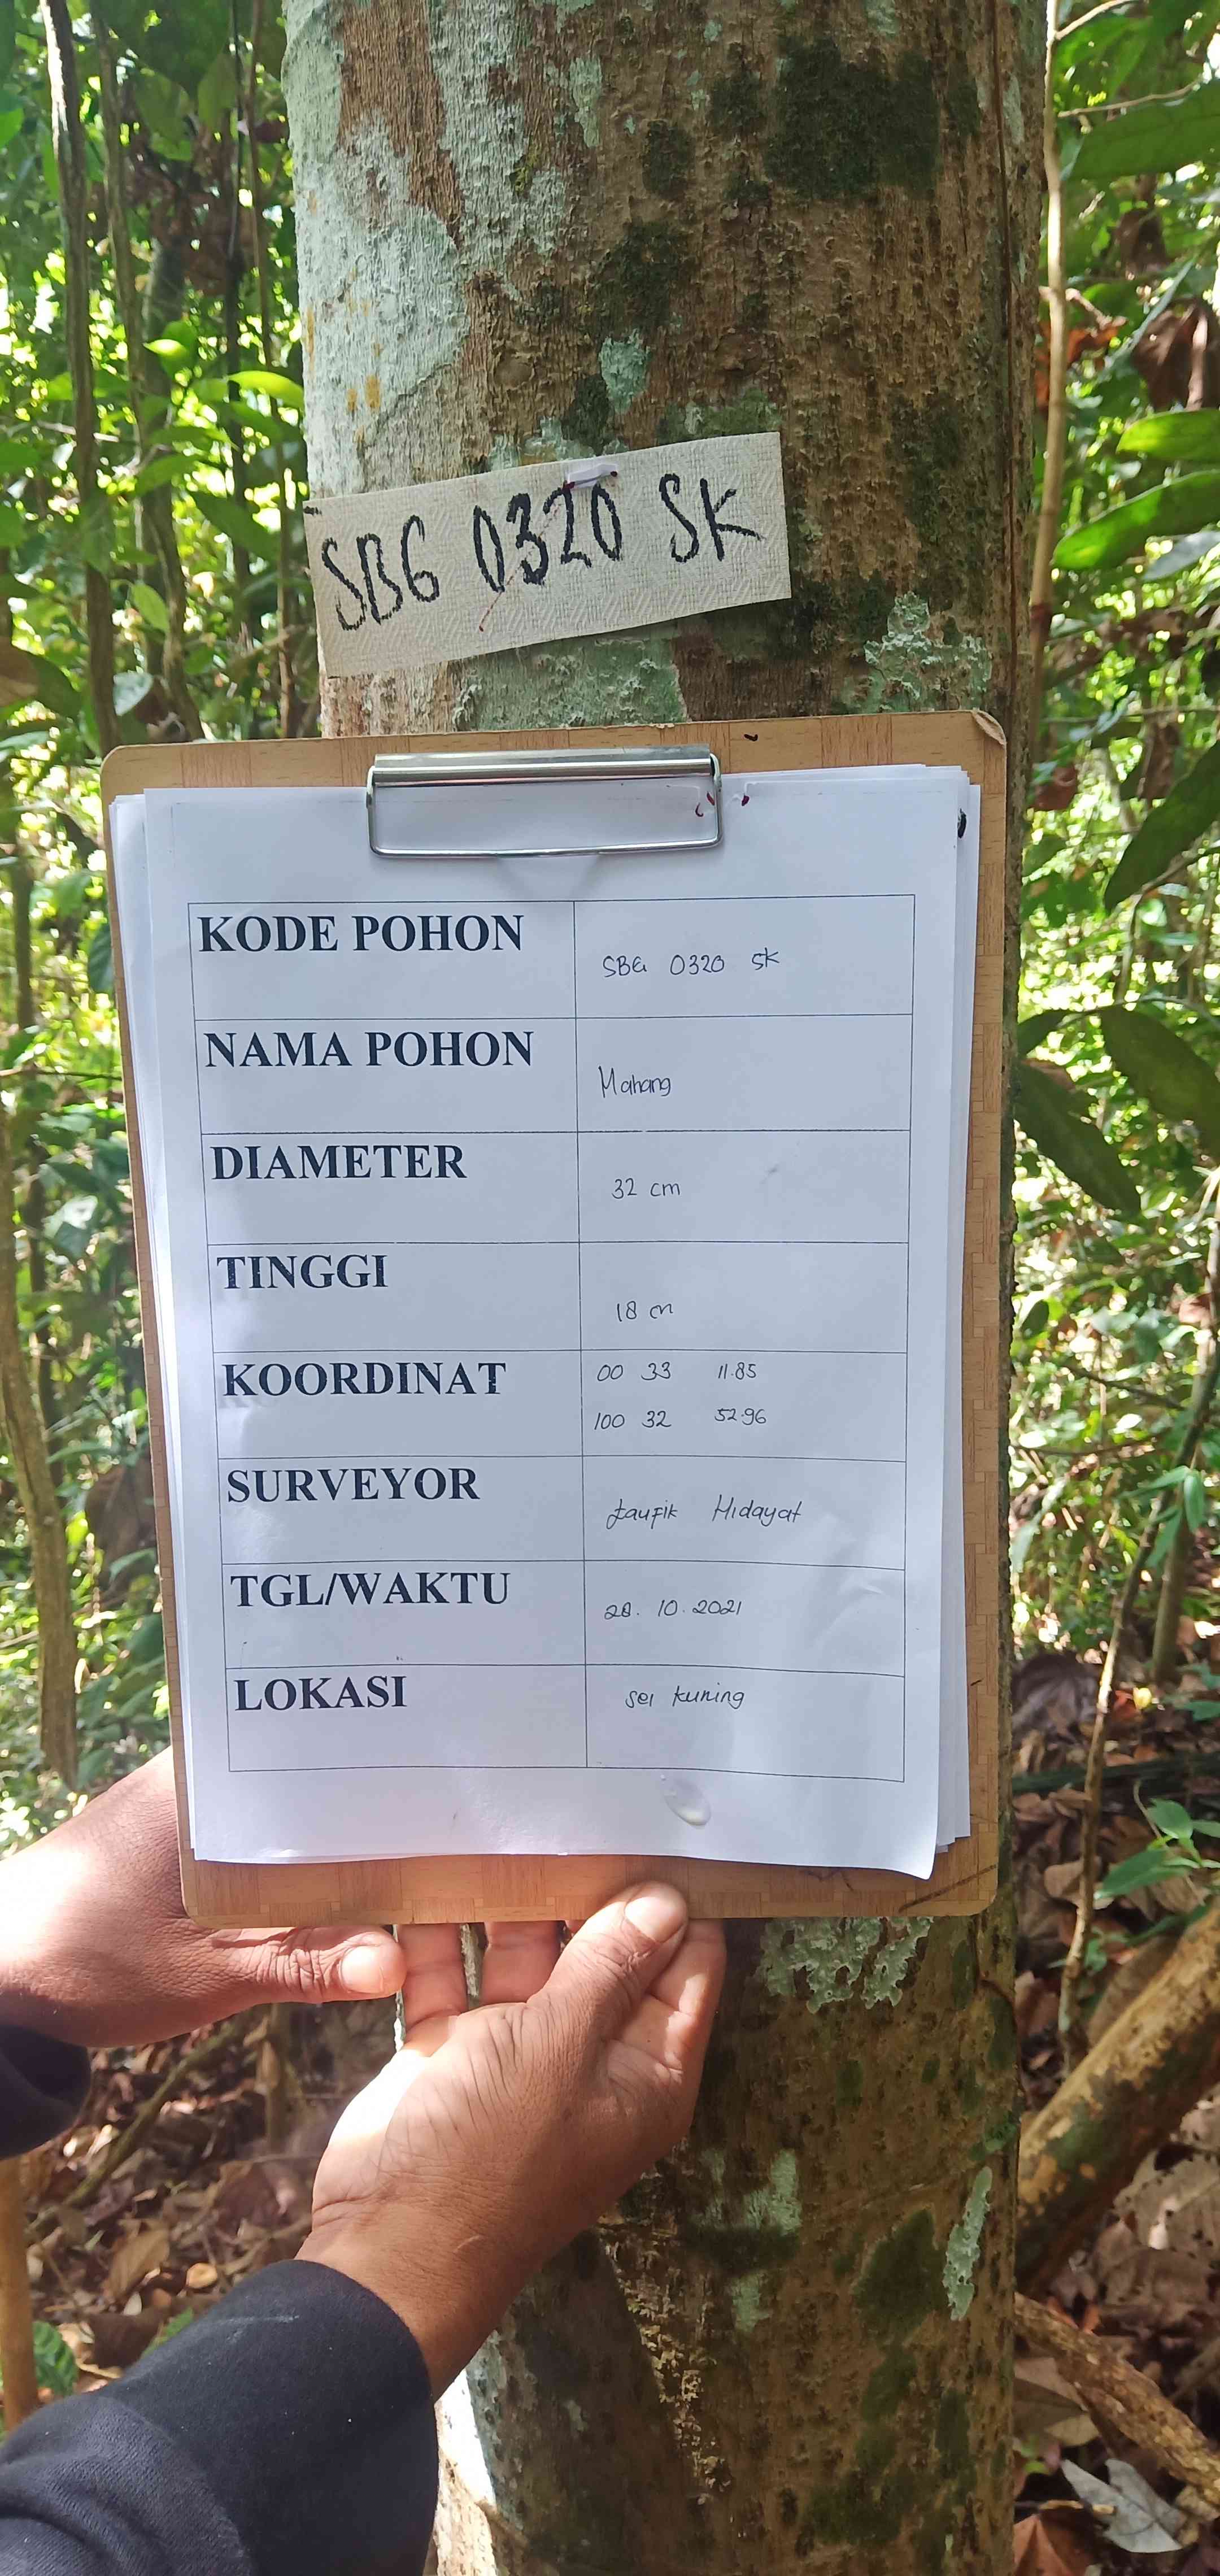 SBG 0320 SK
KODE POHON SBG 0320 SK
NAMA POHON Mahang
DIAMETER 32 cm
TINGGI 18 cm
KOORDINAT 00 33 11.85
100 32 52.96
SURVEYOR taufik Hidayat
TGL/WAKTU 28. 10. 2021
LOKASI sei kuning